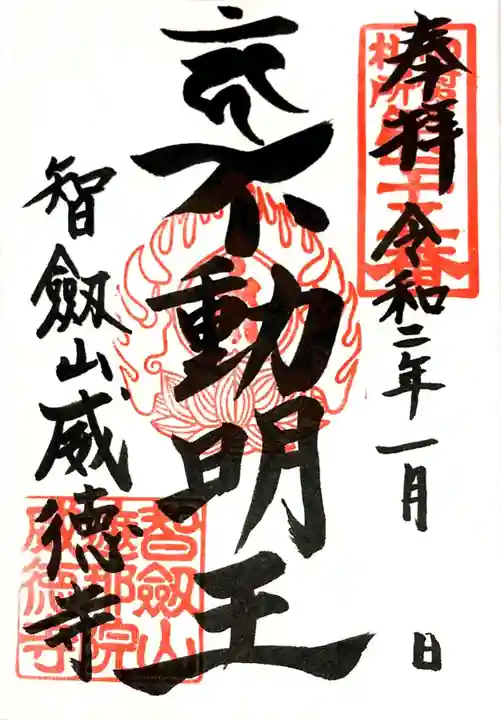 奉拝 令和二年一月 日
不動明王
智劔山威徳寺
智劔山
威徳寺